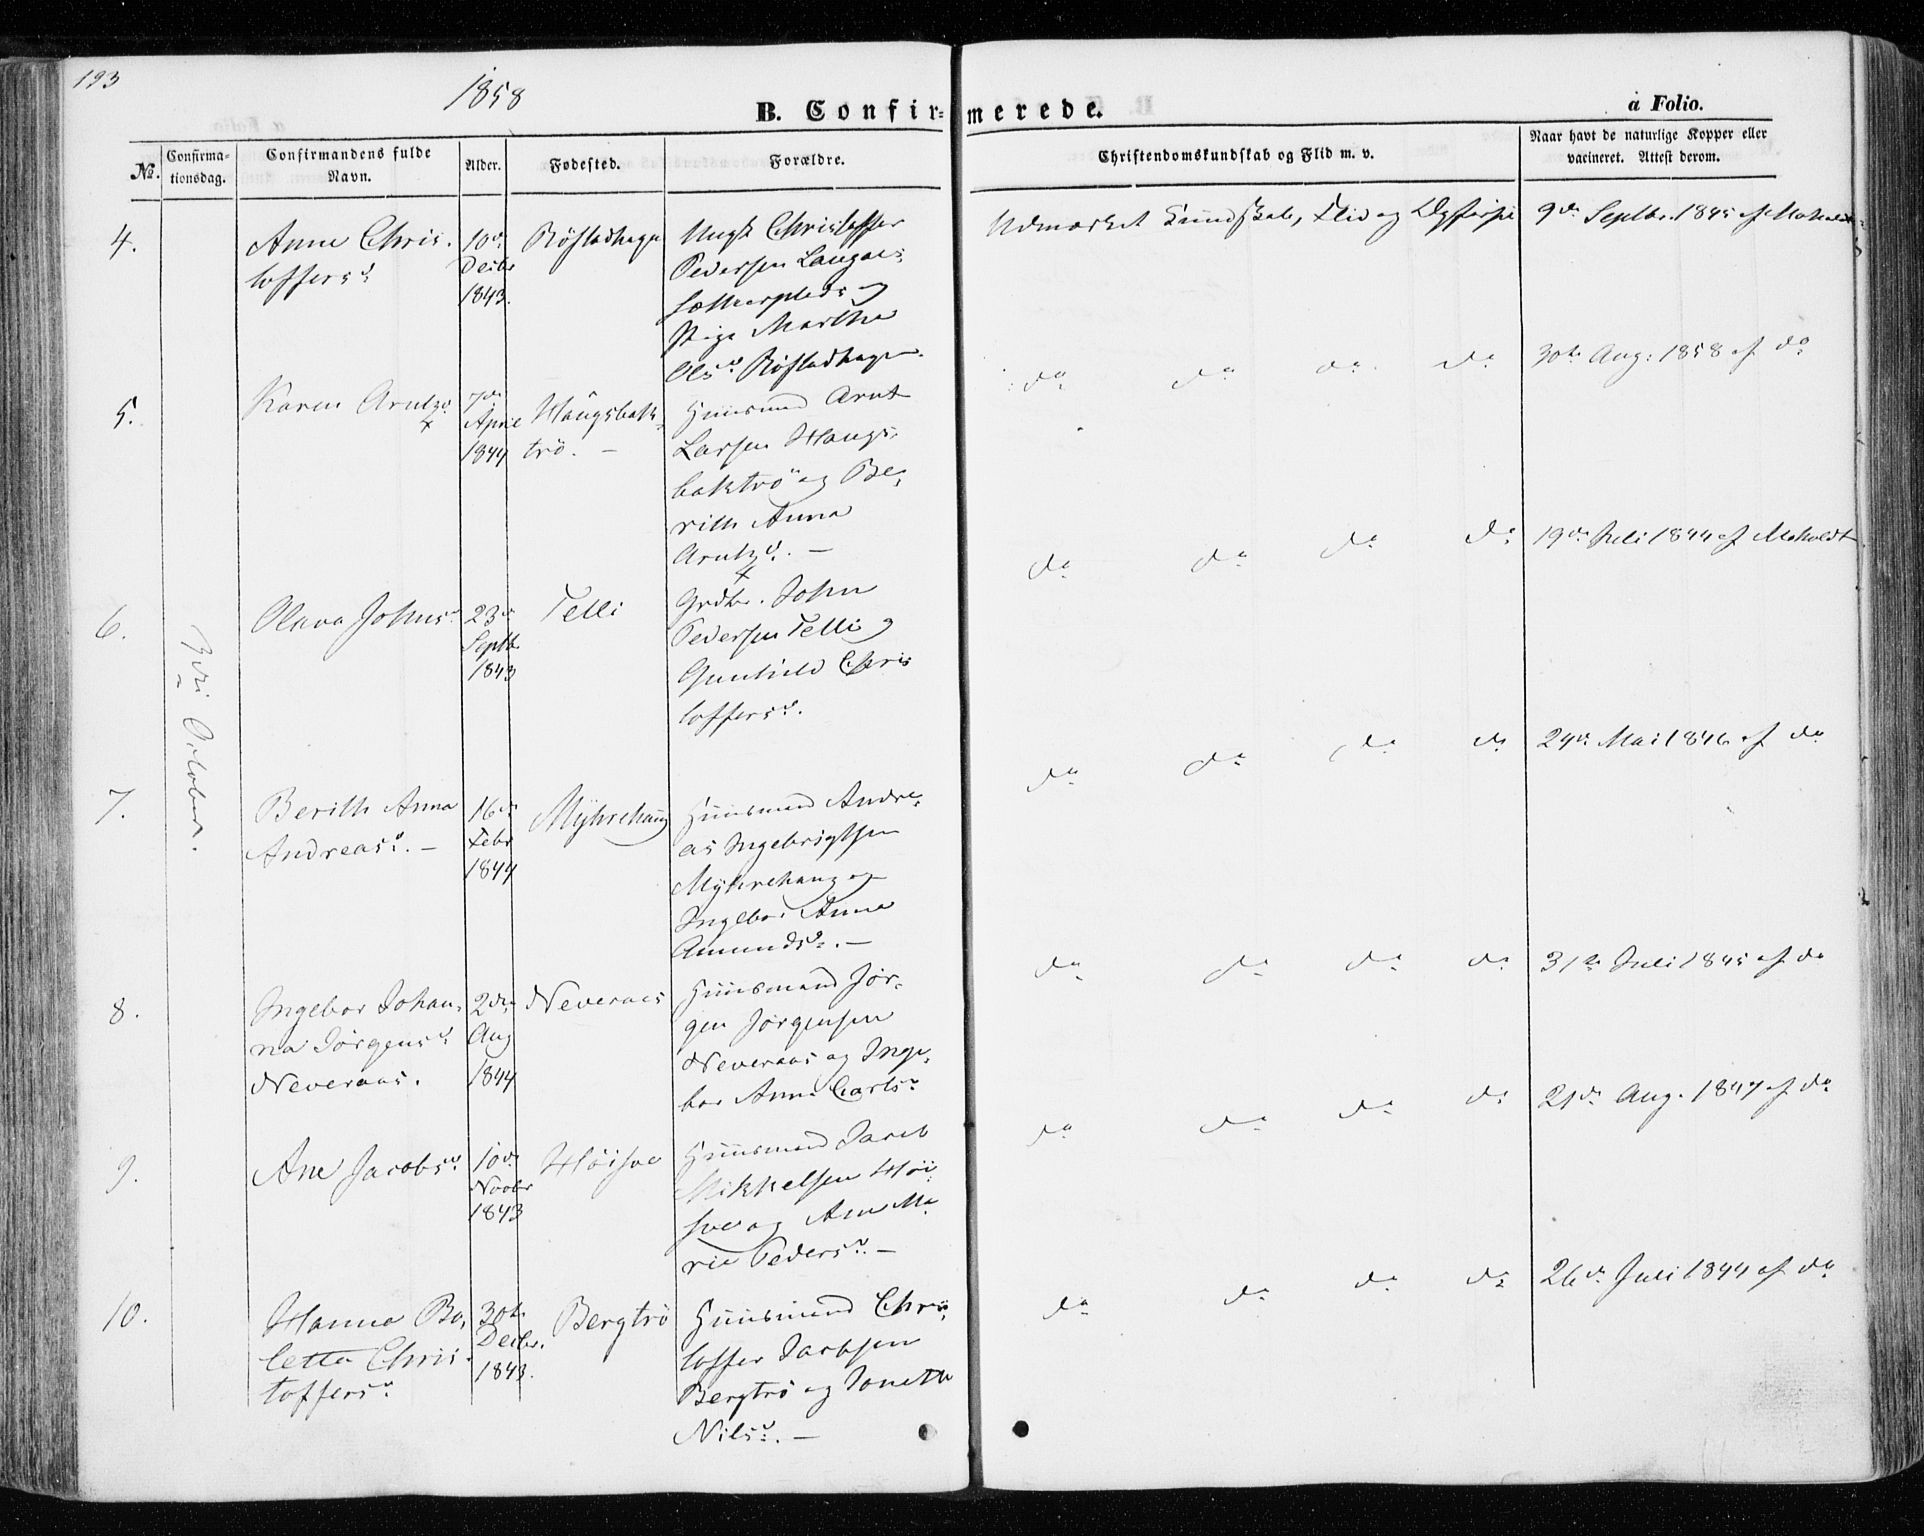 193
1858
B. Confirmerede.
a Folio.
No.
Confirmationsdag.
Confirmandens fulde Navn.
Alder.
Fødested.
Forældre.
Christendomskundskab og Flid m. v.
Naar havt de naturlige Kopper eller vacineret. Attest derom.
3die October.
4.
Anne Chris-
toffersd.
10de
Decbr
1843.
Røstadhagen
Ungk Christoffer
Pedersen
og
Pige Martha
Olsd. Røstadhagen.
Udmærket Kundskab, Flid og
9de Septbr. 1845 af Moholdt
5.
Karen Arntzd.
7de
April
1844
Haugsbak-
trö. –
Huusmand Arnt
Larsen Haugs-
baktrö og Be-
rith Anna
Arntzd. –
do do do do
30te Aug: 1858 af do
6.
Olava Johnsd.
23de
Septbr
1843
Telli
Grdbr. John
Pedersen Telli og
Gunhild Chris
toffersd.
do do do do
19de Juli 1844 af Moholdt
7.
Berith Anna
Andreasd. –
16de
Febr
1844
Myhrehaug
Huusmand Andre-
as Ingebrigtsen
Myhrehaug og
Ingebor Anna
Amundsd. –
do do do do
24de Mai 1846 af do
8.
Ingebor Johan-
na Jörgensd.
Neveraas.
2den
Aug
1844
Neveraas
Huusmand Jör-
gen Jörgensen
Neveraas og Inge-
bor Anna Carlsd.
do do do do
31te Juli 1845 af do
9.
Ane Jacobsd.
10de
Novbr
1843
Höisve
Huusmand Jacob
Mikkelsen Höi-
sve og Ane Ma
rie Pedersd. –
do do do do
21de Aug. 1847 af do
10.
Hanna Bo-
letta Chris-
toffersd.
30te
Decbr.
1843.
Bergtrö
Huusmand Chris-
toffer Jacobsen
Bergtrö og Joneth
Nilsd. –
do do do do
26de Juli 1844 af do